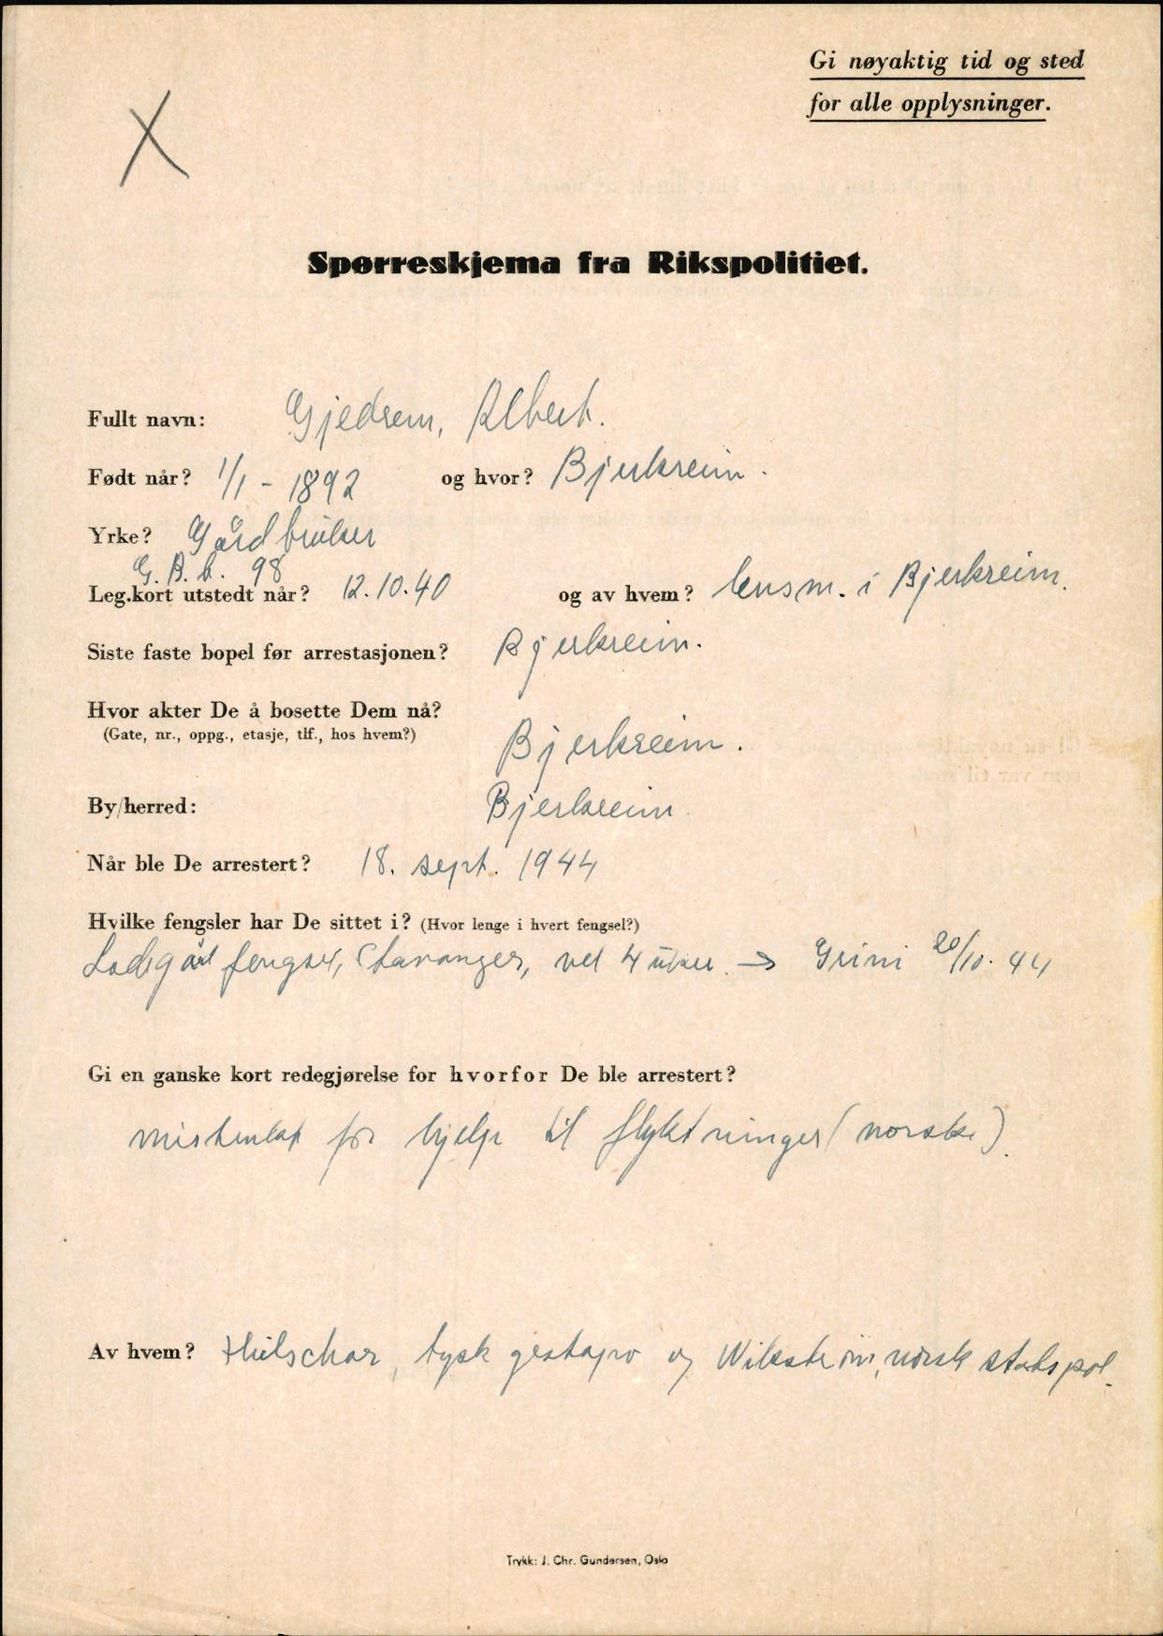 Gi nøyaktig tid og sted
for alle opplysninger.
X
Spørreskjema fra Rikspolitiet.
Fullt navn: Gjedrem, Albert.
Født når? 1/1 - 1892 og hvor? Bjerkreim.
Yrke? Gårdbruker
G. B. b. 98
Leg.kort utstedt når? 12.10.40 og av hvem? lensm. i Bjerkreim.
Siste faste bopel før arrestasjonen? Bjerkreim.
Hvor akter De å bosette Dem nå?
(Gate, nr., oppg., etasje, tlf., hos hvem?) Bjerkreim.
By/herred: Bjerkreim.
Når ble De arrestert? 18. sept. 1944
Hvilke fengsler har De sittet i? (Hvor lenge i hvert fengsel?)
Ladegård fengsel, Stavanger, vel 4 uker → Grini 20/10. 44
Gi en ganske kort redegjørelse for hvorfor De ble arrestert?
mistenkt for hjelp til flyktninger (norske).
Av hvem? tysk gestapo og norsk statspol.
Trykk: J. Chr. Gundersen, Oslo